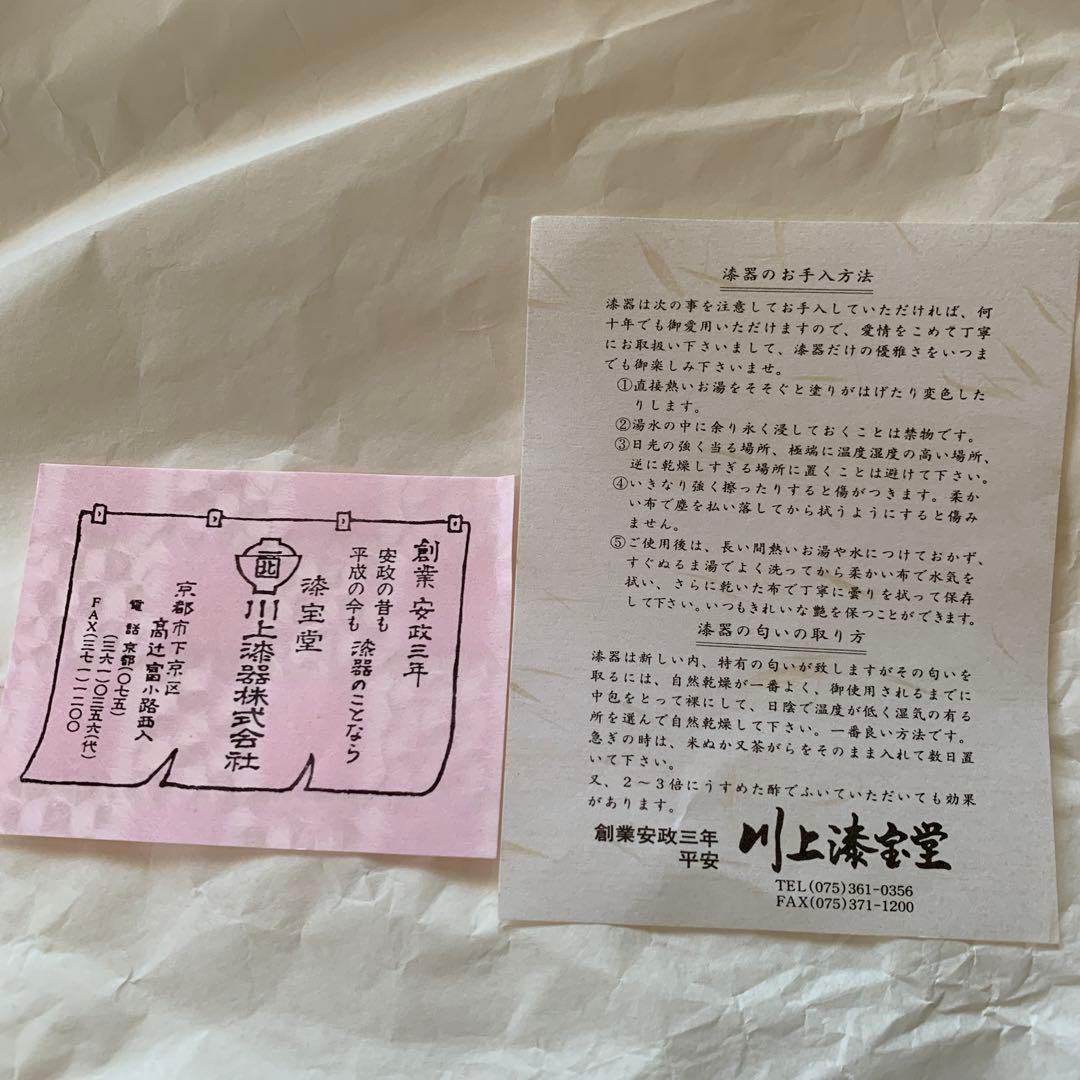 創業 安政三年
安政の昔も
平成の今も
漆器のことなら
漆宝堂
川上漆器株式会社
京都市下京区
高辻富小路西入
電話 京都(〇七五)
(三六一)〇三五六(代)
FAX(三七一)一二〇〇
漆器のお手入方法
漆器は次の事を注意してお手入していただければ、何
十年でも御愛用いただけますので、愛情をこめて丁寧
にお取扱い下さいまして、漆器だけの優雅さをいつま
でも御楽しみ下さいませ。
①直接熱いお湯をそそぐと塗りがはげたり変色した
りします。
②湯水の中に余り永く浸しておくことは禁物です。
③日光の強く当る場所、極端に温度湿度の高い場所、
逆に乾燥しすぎる場所に置くことは避けて下さい。
④いきなり強く擦ったりすると傷がつきます。柔か
い布で塵を払い落してから拭うようにすると傷み
ません。
⑤ご使用後は、長い間熱いお湯や水につけておかず、
すぐぬるま湯でよく洗ってから柔かい布で水気を
拭い、さらに乾いた布で丁寧に曇りを拭って保存
して下さい。いつもきれいな艶を保つことができます。
漆器の匂いの取り方
漆器は新しい内、特有の匂いが致しますがその匂いを
取るには、自然乾燥が一番よく、御使用されるまでに
中包をとって裸にして、日陰で温度が低く湿気の有る
所を選んで自然乾燥して下さい。一番良い方法です。
急ぎの時は、米ぬか又茶がらをそのまま入れて数日置
いて下さい。
又、2〜3倍にうすめた酢でふいていただいても効果
があります。
創業安政三年
平安
川上漆宝堂
TEL(075)361-0356
FAX(075)371-1200